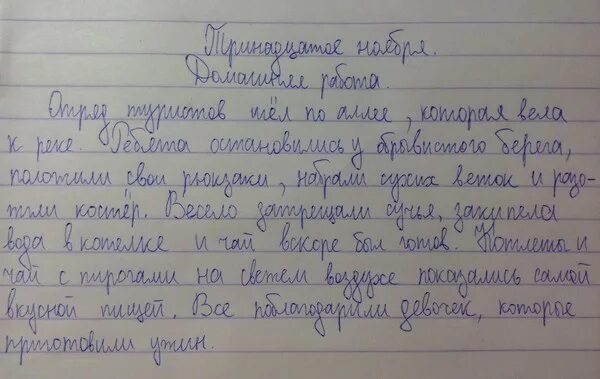 Тринадцатое ноября.
Домашняя работа.
Отряд туристов шёл по аллее, которая вела
к реке. Ребята остановились у обрывистого берега,
положили свои рюкзаки, набрали сухих веток и разо-
жгли костёр. Весело затрещали сучья, закипела
вода в котелке и чай вскоре был готов. Котлеты и
чай с пирогами на свежем воздухе показались самой
вкусной пищей. Все поблагодарили девочек, которые
приготовили ужин.